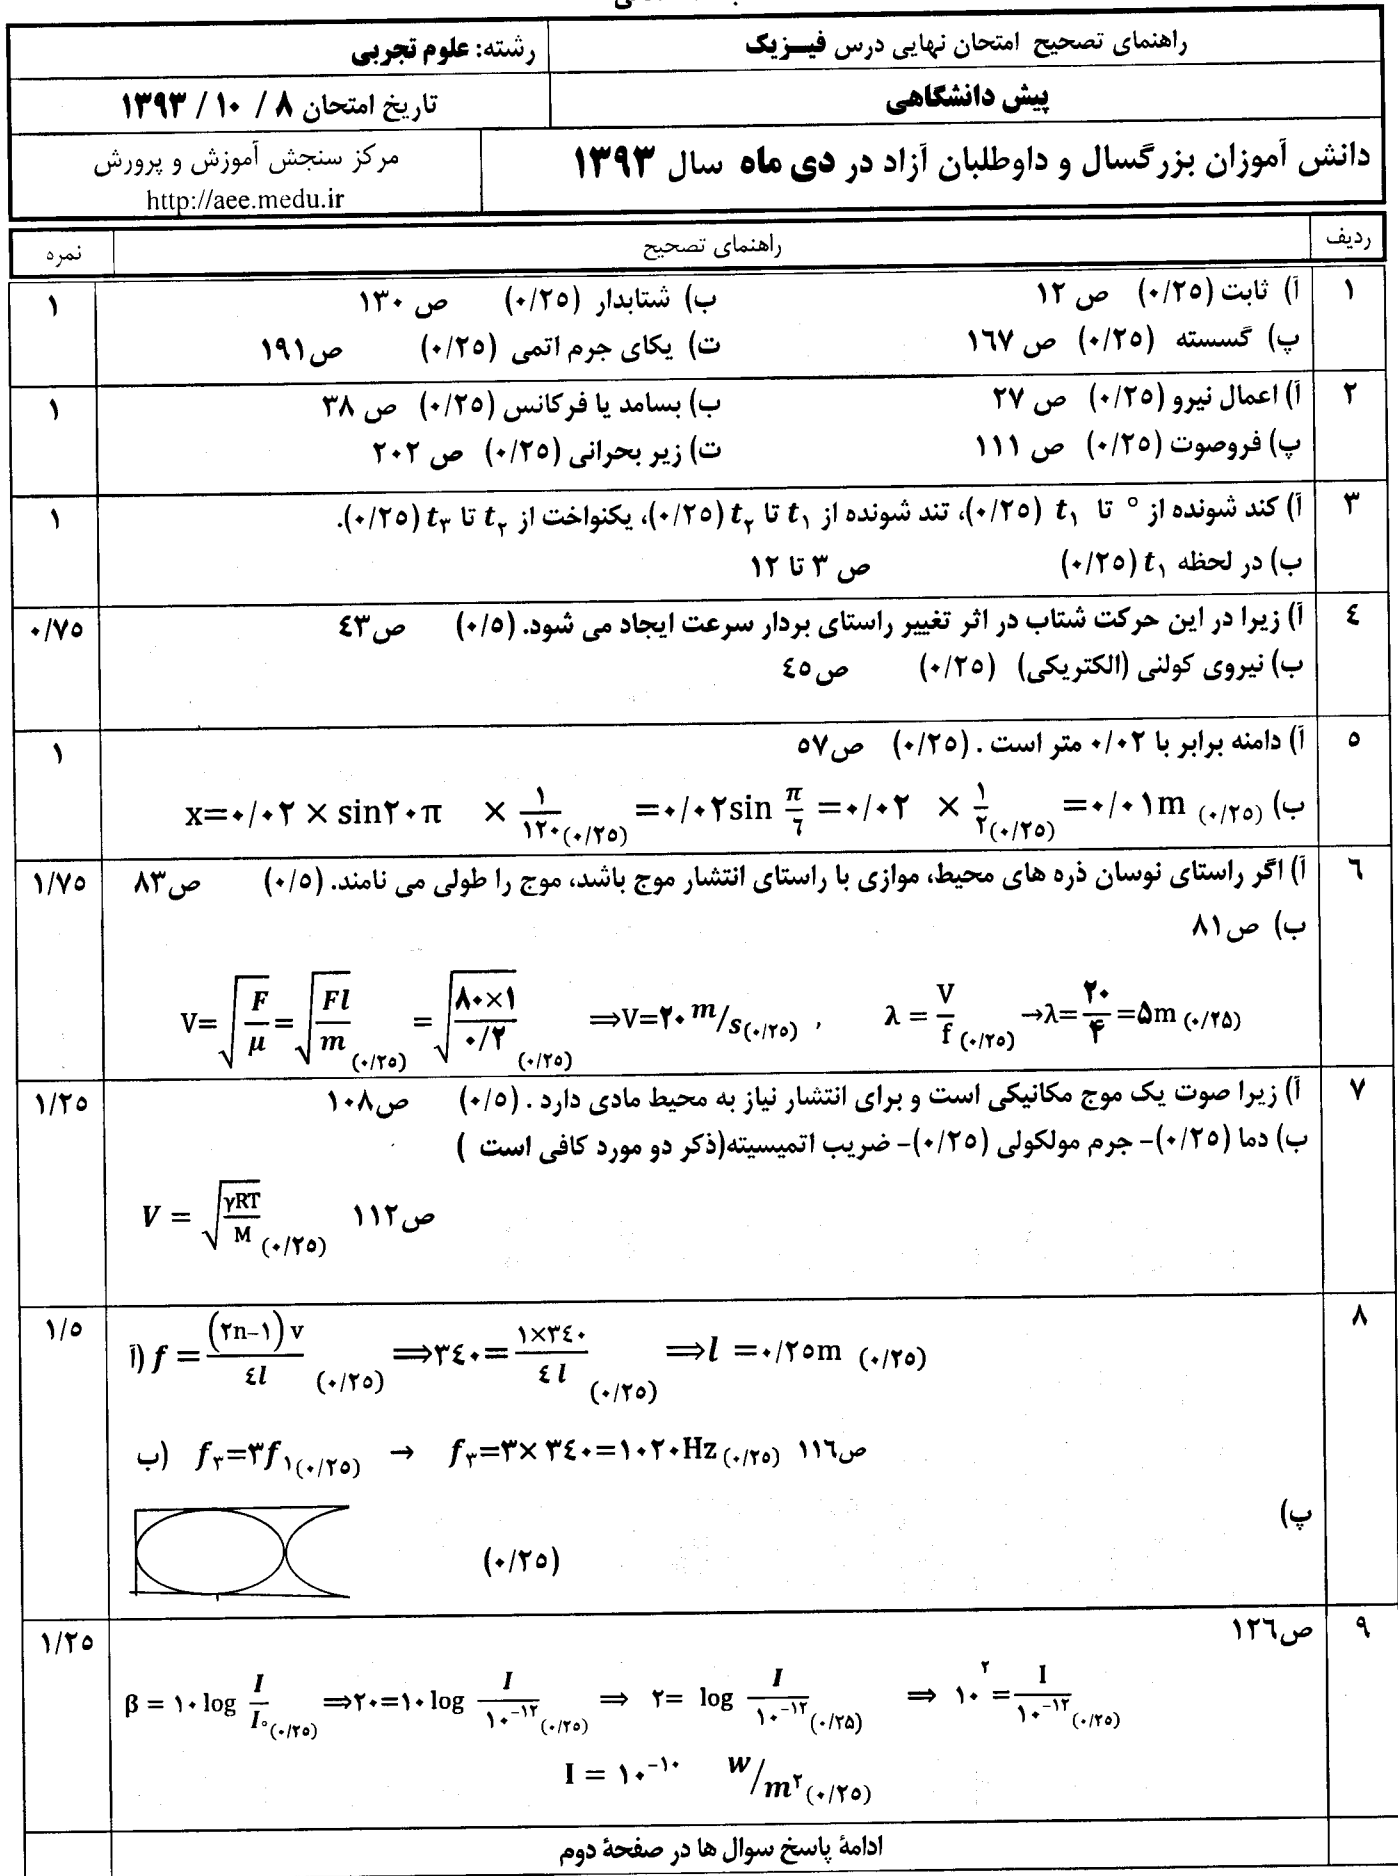 راهنمای تصحیح امتحان نهایی درس فیــزیک
رشته: علوم تجربی
پیش دانشگاهی
تاریخ امتحان ۸ / ۱۰ / ۱۳۹۳
دانش آموزان بزرگسال و داوطلبان آزاد در دی ماه سال ۱۳۹۳
مرکز سنجش آموزش و پرورش
http://aee.medu.ir
ردیف راهنمای تصحیح نمره
۱ آ) ثابت (۰/۲۵) ص ۱۲ ب) شتابدار (۰/۲۵) ص ۱۳۰ ۱
پ) گسسته (۰/۲۵) ص ۱۶۷ ت) یکای جرم اتمی (۰/۲۵) ص۱۹۱
۲ آ) اعمال نیرو (۰/۲۵) ص ۲۷ ب) بسامد یا فرکانس (۰/۲۵) ص ۳۸ ۱
پ) فروصوت (۰/۲۵) ص ۱۱۱ ت) زیر بحرانی (۰/۲۵) ص ۲۰۲
۳ آ) کند شونده از ° تا t۱ (۰/۲۵)، تند شونده از t۱ تا t۲ (۰/۲۵)، یکنواخت از t۲ تا t۳ (۰/۲۵). ۱
ب) در لحظه t۱ (۰/۲۵) ص ۳ تا ۱۲
٤ آ) زیرا در این حرکت شتاب در اثر تغییر راستای بردار سرعت ایجاد می شود. (۰/۵) ص٤۳ ۰/۷۵
ب) نیروی کولنی (الکتریکی) (۰/۲۵) ص٤۵
۵ آ) دامنه برابر با ۰/۰۲ متر است . (۰/۲۵) ص۵۷ ۱
ب) x=۰/۰۲ × sin۲۰π × ۱/۱۲۰ (۰/۲۵) =۰/۰۲sin π/٦ =۰/۰۲ × ۱/۲ (۰/۲۵) =۰/۰۱m (۰/۲۵)
٦ آ) اگر راستای نوسان ذره های محیط، موازی با راستای انتشار موج باشد، موج را طولی می نامند. (۰/۵) ص۸۳ ۱/۷۵
ب) ص۸۱
V=√(F/μ)=√(Fl/m) (۰/۲۵) =√(۸۰×۱/۰/۲) (۰/۲۵) ⟹V=۲۰ m/s(۰/۲۵) , λ = V/f (۰/۲۵) →λ=۲۰/۴ =۵m (۰/۲۵)
۷ آ) زیرا صوت یک موج مکانیکی است و برای انتشار نیاز به محیط مادی دارد . (۰/۵) ص۱۰۸ ۱/۲۵
ب) دما (۰/۲۵)- جرم مولکولی (۰/۲۵)- ضریب اتمیسیته(ذکر دو مورد کافی است )
V = √(γRT/M) (۰/۲۵) ص۱۱۲
۸ آ) f = (۲n−۱) v/٤l (۰/۲۵) ⟹۳٤۰= ۱×۳٤۰/٤ l (۰/۲۵) ⟹l =۰/۲۵m (۰/۲۵) ۱/۵
ب) f۳=۳f۱(۰/۲۵) → f۳=۳× ۳٤۰=۱۰۲۰Hz (۰/۲۵) ص۱۱٦
پ) (۰/۲۵)
۹ ص۱۲٦ ۱/۲۵
β = ۱۰ log I/I° (۰/۲۵) ⟹۲۰=۱۰ log I/۱۰⁻¹² (۰/۲۵) ⟹ ۲= log I/۱۰⁻¹² (۰/۲۵) ⟹ ۱۰² = I/۱۰⁻¹² (۰/۲۵)
I = ۱۰⁻¹⁰ w/m² (۰/۲۵)
ادامهٔ پاسخ سوال ها در صفحهٔ دوم